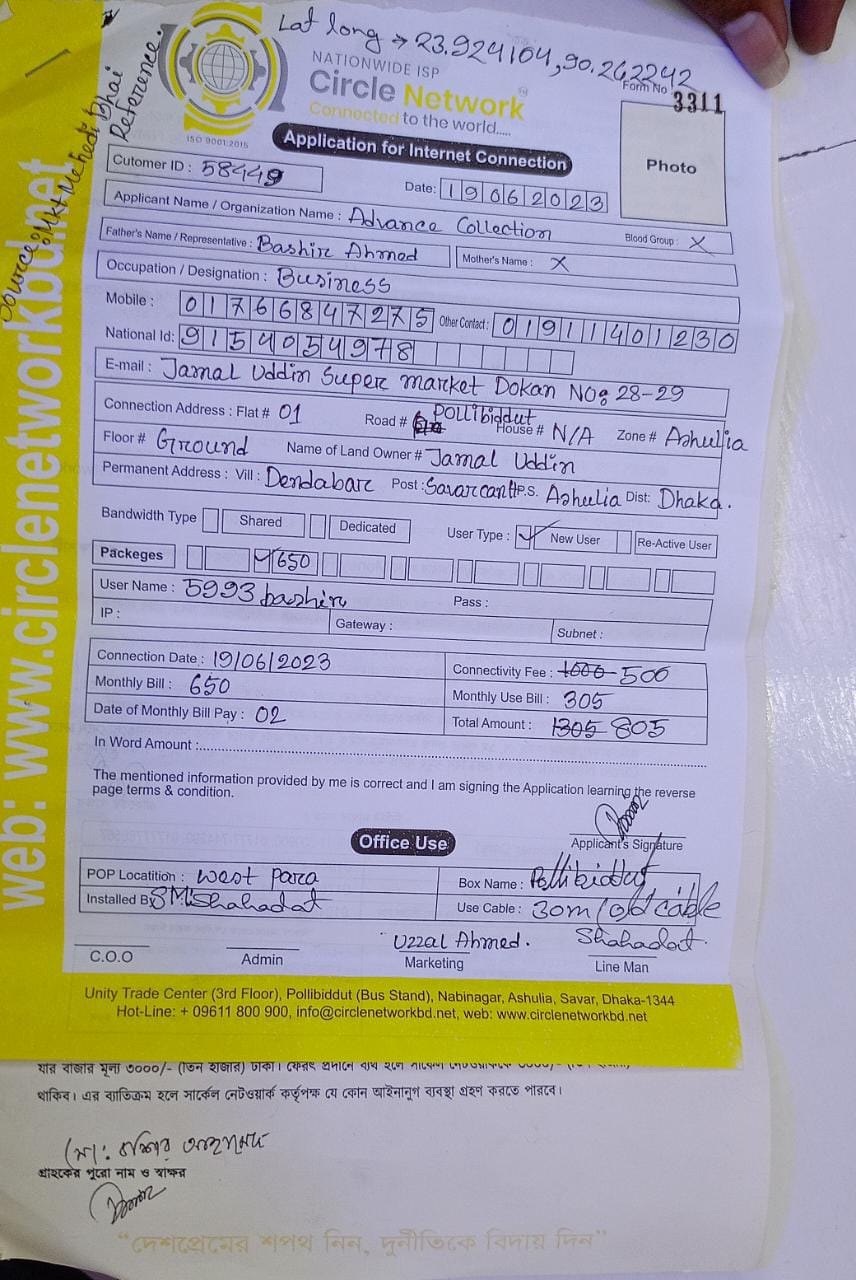 Lat long → 23.924104,90.262242
Source: Mkt Mehedi bhai
Reference.
NATIONWIDE ISP
Circle Network
Connected to the world.....
ISO 9001:2015
Form No : 3311
Application for Internet Connection
Photo
Cutomer ID : 58449
Date: 19062023
Applicant Name / Organization Name : Advance Collection
Blood Group : X
Father's Name / Representative : Bashir Ahmed
Mother's Name : X
Occupation / Designation : Business
Mobile : 01766847275 Other Contact : 01911401230
National Id: 9154054978
E-mail : Jamal Uddin Super market Dokan NO: 28-29
Connection Address : Flat # 01 Road # Pollibiddut House # N/A Zone # Ashulia
Floor # Ground Name of Land Owner # Jamal Uddin
Permanent Address : Vill : Dendabar Post : Savarcantt P.S. Ashulia Dist: Dhaka.
Bandwidth Type Shared Dedicated User Type : ✓ New User Re-Active User
Packeges ✓ 650
User Name : 5993bashir Pass :
IP : Gateway : Subnet :
Connection Date : 19/06/2023 Connectivity Fee : 1000 500
Monthly Bill : 650 Monthly Use Bill : 305
Date of Monthly Bill Pay : 02 Total Amount : 1305 805
In Word Amount :
The mentioned information provided by me is correct and I am signing the Application learning the reverse
page terms & condition.
Office Use
Applicant's Signature
POP Locatition : West Para Box Name : Pollibiddut
Installed By SM Shahadat Use Cable : 30m/old cable
Uzzal Ahmed. Shahadat
C.O.O Admin Marketing Line Man
Unity Trade Center (3rd Floor), Pollibiddut (Bus Stand), Nabinagar, Ashulia, Savar, Dhaka-1344
Hot-Line: + 09611 800 900, info@circlenetworkbd.net, web: www.circlenetworkbd.net
web: www.circlenetworkbd.net
যার বাজার মূল্য ৩০০০/- (তিন হাজার) টাকা। ফেরৎ প্রদানে ব্যর্থ হলে সার্কেল নেটওয়ার্ককে
থাকিব। এর ব্যতিক্রম হলে সার্কেল নেটওয়ার্ক কর্তৃপক্ষ যে কোন আইনানুগ ব্যবস্থা গ্রহণ করতে পারবে।
মো: বশির আহমেদ
গ্রাহকের পুরো নাম ও স্বাক্ষর
"দেশপ্রেমের শপথ নিন, দুর্নীতিকে বিদায় দিন"